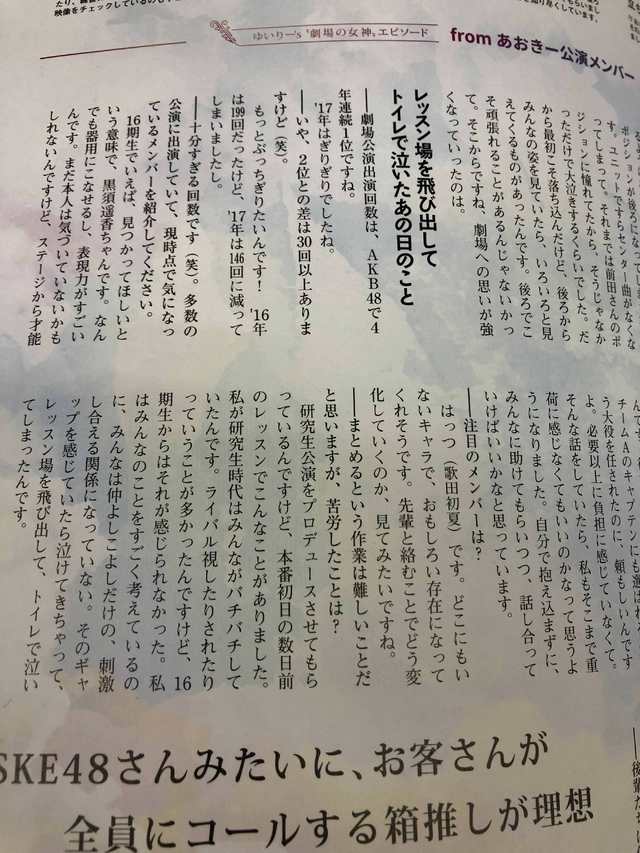 映像をチェックしているの
ゆいりー's "劇場の女神" エピソード
from あおきー公演メンバー
ってしまって。それまでは前田さんのポ
ジションに憧れてたから、そうじゃなか
っただけで大泣きするくらいでした。だ
から最初こそ落ち込んだけど、後ろから
みんなの姿を見ていたら、いろいろと見
えてくるものがあったんです。後ろでこ
そ頑張れることがあるんじゃないかっ
て。そこからですね、劇場への思いが強
くなっていったのは。
レッスン場を飛び出して
トイレで泣いたあの日のこと
──劇場公演出演回数は、AKB48で4
年連続1位ですね。
'17年はぎりぎりでしたね。
──いや、2位との差は30回以上ありま
すけど(笑)。
もっとぶっちぎりたいんです! '16年
は199回だったけど、'17年は146回に減って
しまいましたし。
──十分すぎる回数です(笑)。多数の
公演に出演していて、現時点で気になっ
ているメンバーを紹介してください。
16期生でいえば、見つかってほしいと
いう意味で、黒須遥香ちゃんです。なん
でも器用にこなせるし、表現力がすごい
んです。まだ本人は気づいていないかも
しれないんですけど、ステージから才能
チームAのキャプテンにも選ばれ
う大役を任されたのに、頼もしいんです
よ。必要以上に負担に感じていなくて。
そんな話をしていたら、私もそこまで重
荷に感じなくてもいいのかなって思うよ
うになりました。自分で抱え込まずに、
みんなに助けてもらいつつ、話し合って
いけばいいかなと思っています。
──注目のメンバーは?
はっつ(歌田初夏)です。どこにもい
ないキャラで、おもしろい存在になって
くれそうです。先輩と絡むことでどう変
化していくのか、見てみたいですね。
──まとめるという作業は難しいことだ
と思いますが、苦労したことは?
研究生公演をプロデュースさせてもら
っているんですけど、本番初日の数日前
のレッスンでこんなことがありました。
私が研究生時代はみんながバチバチして
いたんです。ライバル視したりされたり
っていうことが多かったんですけど、16
期生からはそれが感じられなかった。私
はみんなのことをすごく考えているの
に、みんなは仲よしこよしだけの、刺激
し合える関係になっていない。そのギャ
ップを感じていたら泣けてきちゃって、
レッスン場を飛び出して、トイレで泣い
てしまったんです。
SKE48さんみたいに、お客さんが
全員にコールする箱推しが理想